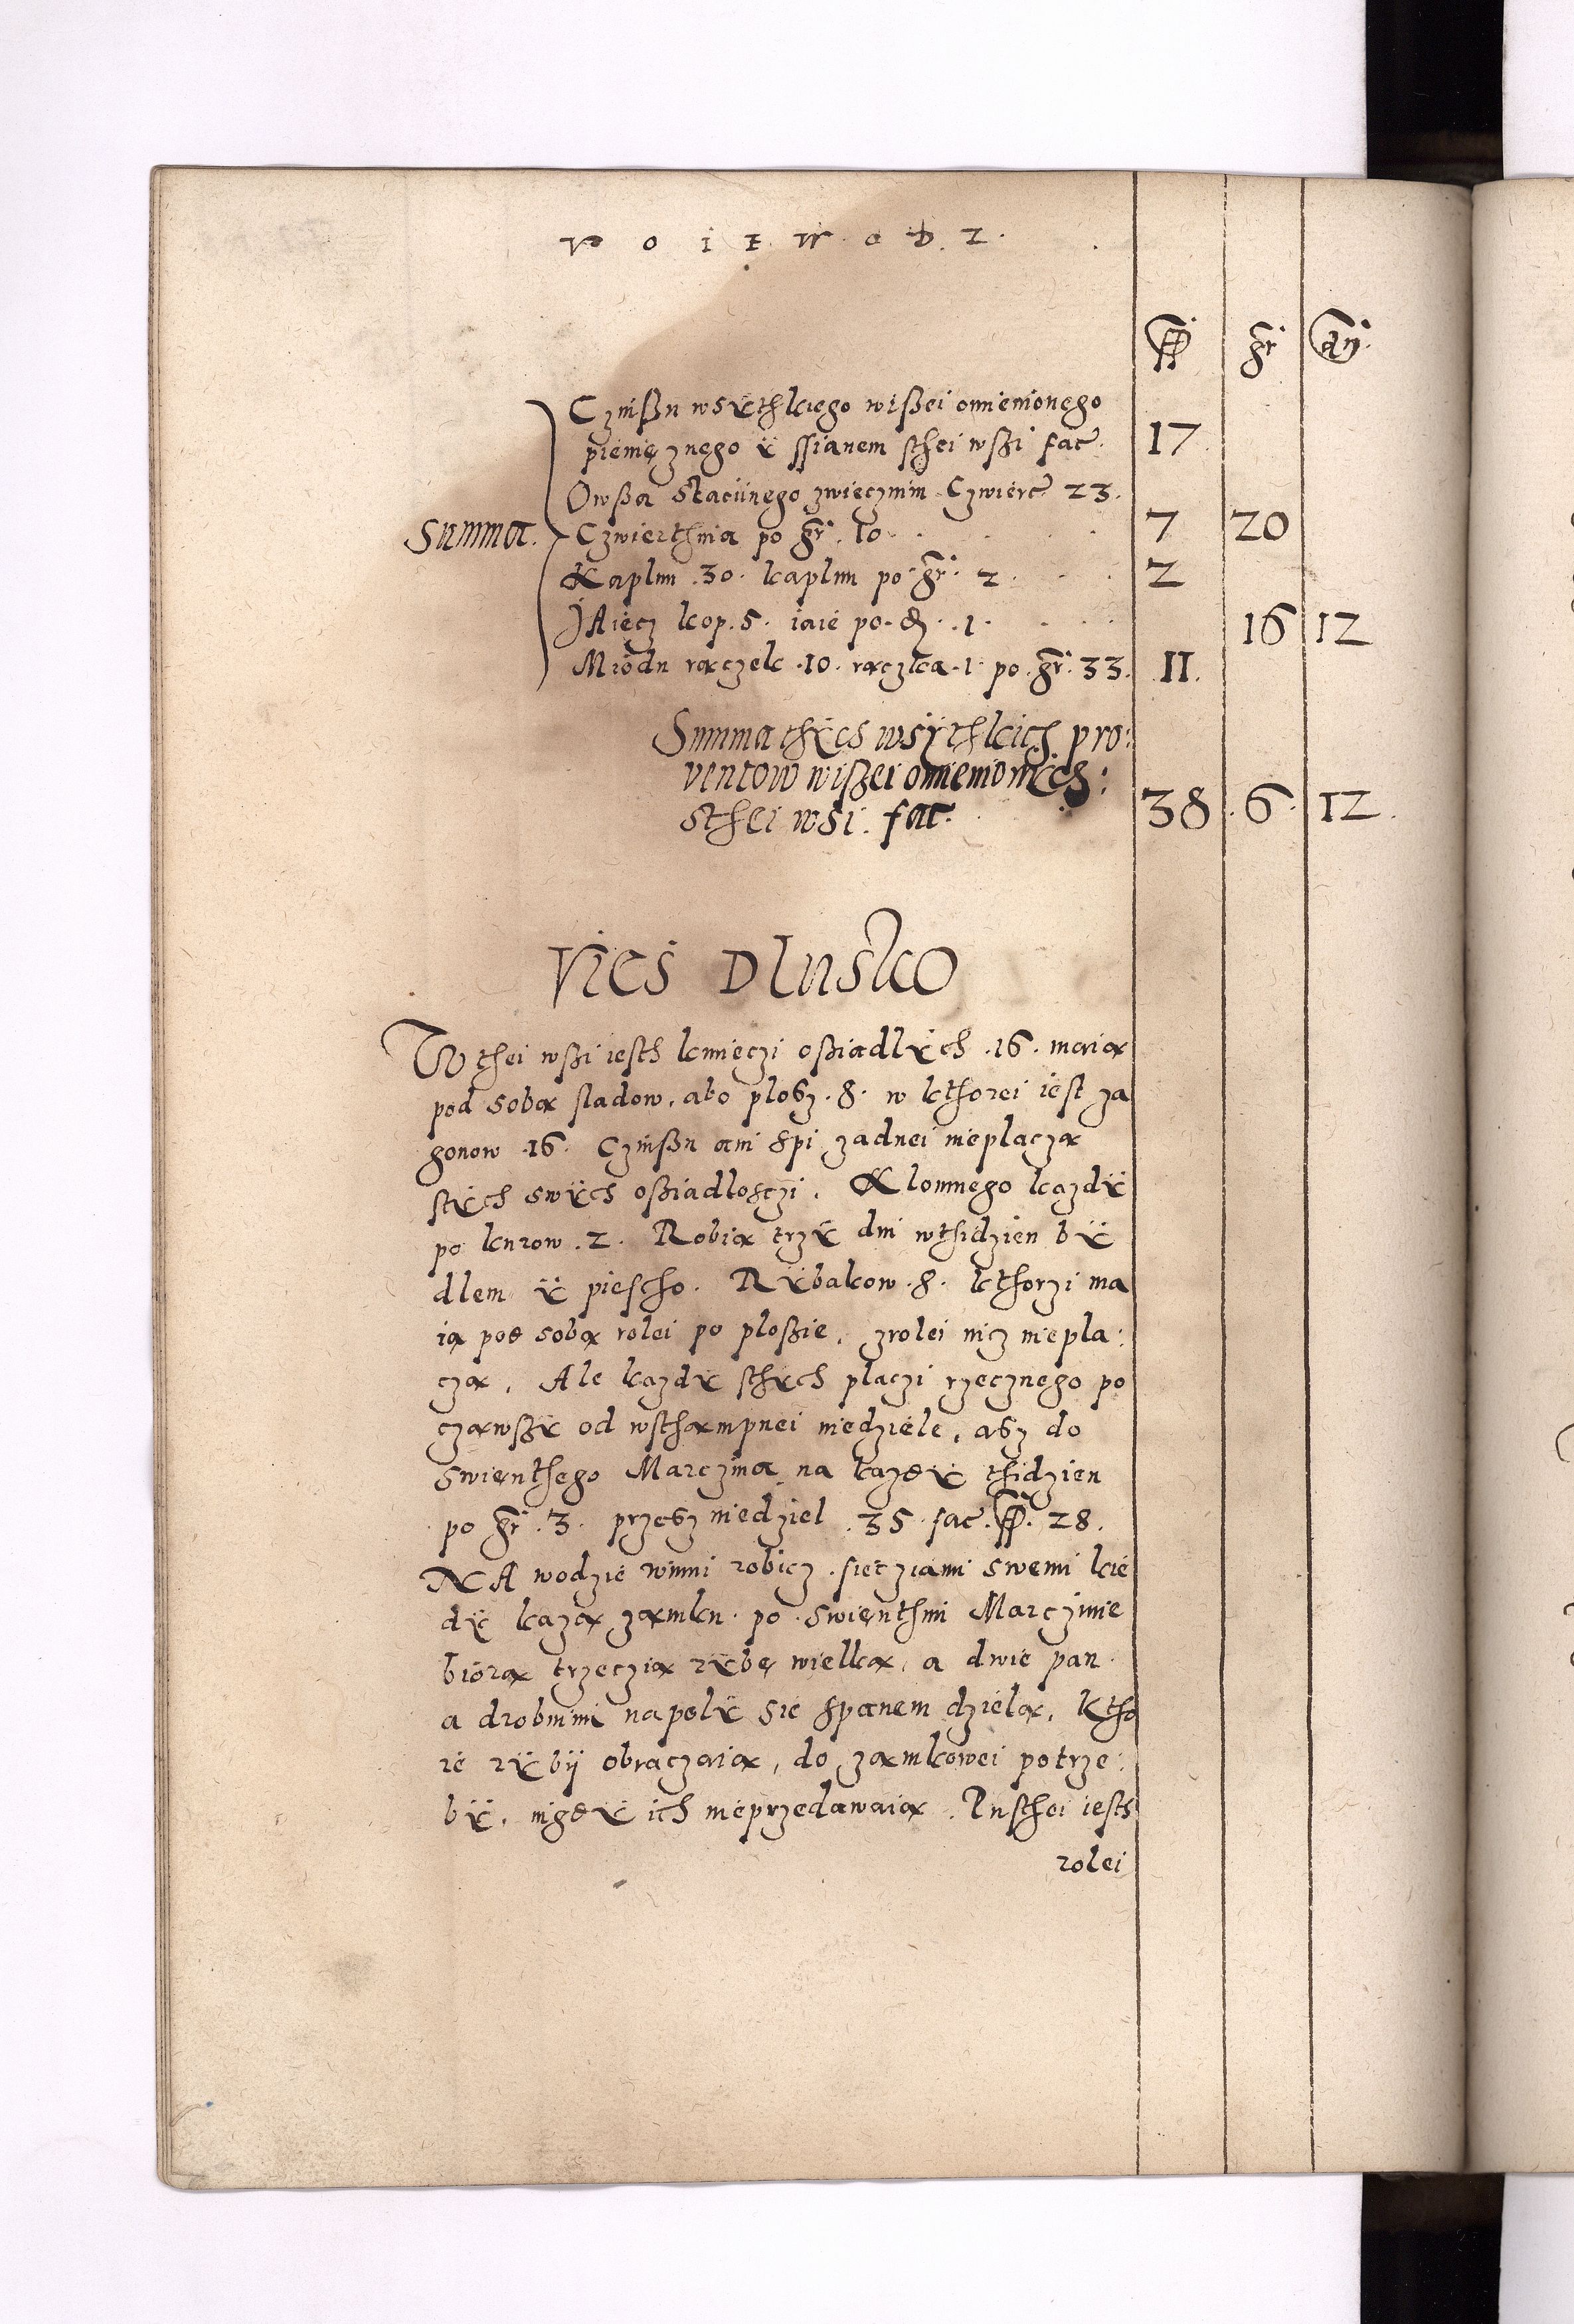 V O I E W O D Z.
ff gr den
Czinßu wsÿthkiego wißei omienionego
pienięznego ÿ ssianem sthei wßi fac. 17
Owßa Staciinego zwiecznim Czwierc 23.
Summa. Czwierthnia po gr. 10. 7 20
Kaplun .30. kaplun po gr. 2. 2
JAiecz kop. 5. iaie po d. 1. 16 12
Miodu rączek .10. rączka .1. po gr. 33. 11.
Summa thÿch wsÿthkich pro:
ventow wißei omienionÿch:
sthei wsi. fac. 38 .6. 12.
Vies Dlusko
W thei wßi iesth kmieczi oßiadlÿch .16. maią
pod sobą sladow, abo plosz .8. w kthorei iest za
gonow .16. Czinßu ani spi zadnei nieplaczą
stÿch swÿch oßiadlosczi. Klonnego kazdÿ
po kurow .2. Robią trzÿ dni wthidzien bÿ
dlem ÿ piescho. Rÿbakow .8. kthorzi ma
ią pod sobą rolei po ploßie, zrolei nicz niepla:
czą, Ale kazdÿ sthÿch placzi rzecznego po
cząwßÿ od wsthąmpnei niedziele, asz do
swienthego Marczina na kazdÿ thidzien
po gr. 3. przesz niedziel .35. fac. ff. 28.
NA wodzie winni robicz siecziami swemi kie
dÿ kazą zamku. po swienthim Marczinie
biorą trzeczią rÿbę wielką, a dwie pan
a drobnimi napolÿ sie spanem dzielą, ktho
re rÿbÿ obraczaią, do zamkowei potrze:
bÿ, nigdÿ ich nieprzedawaią. Pusthei iesth
rolei